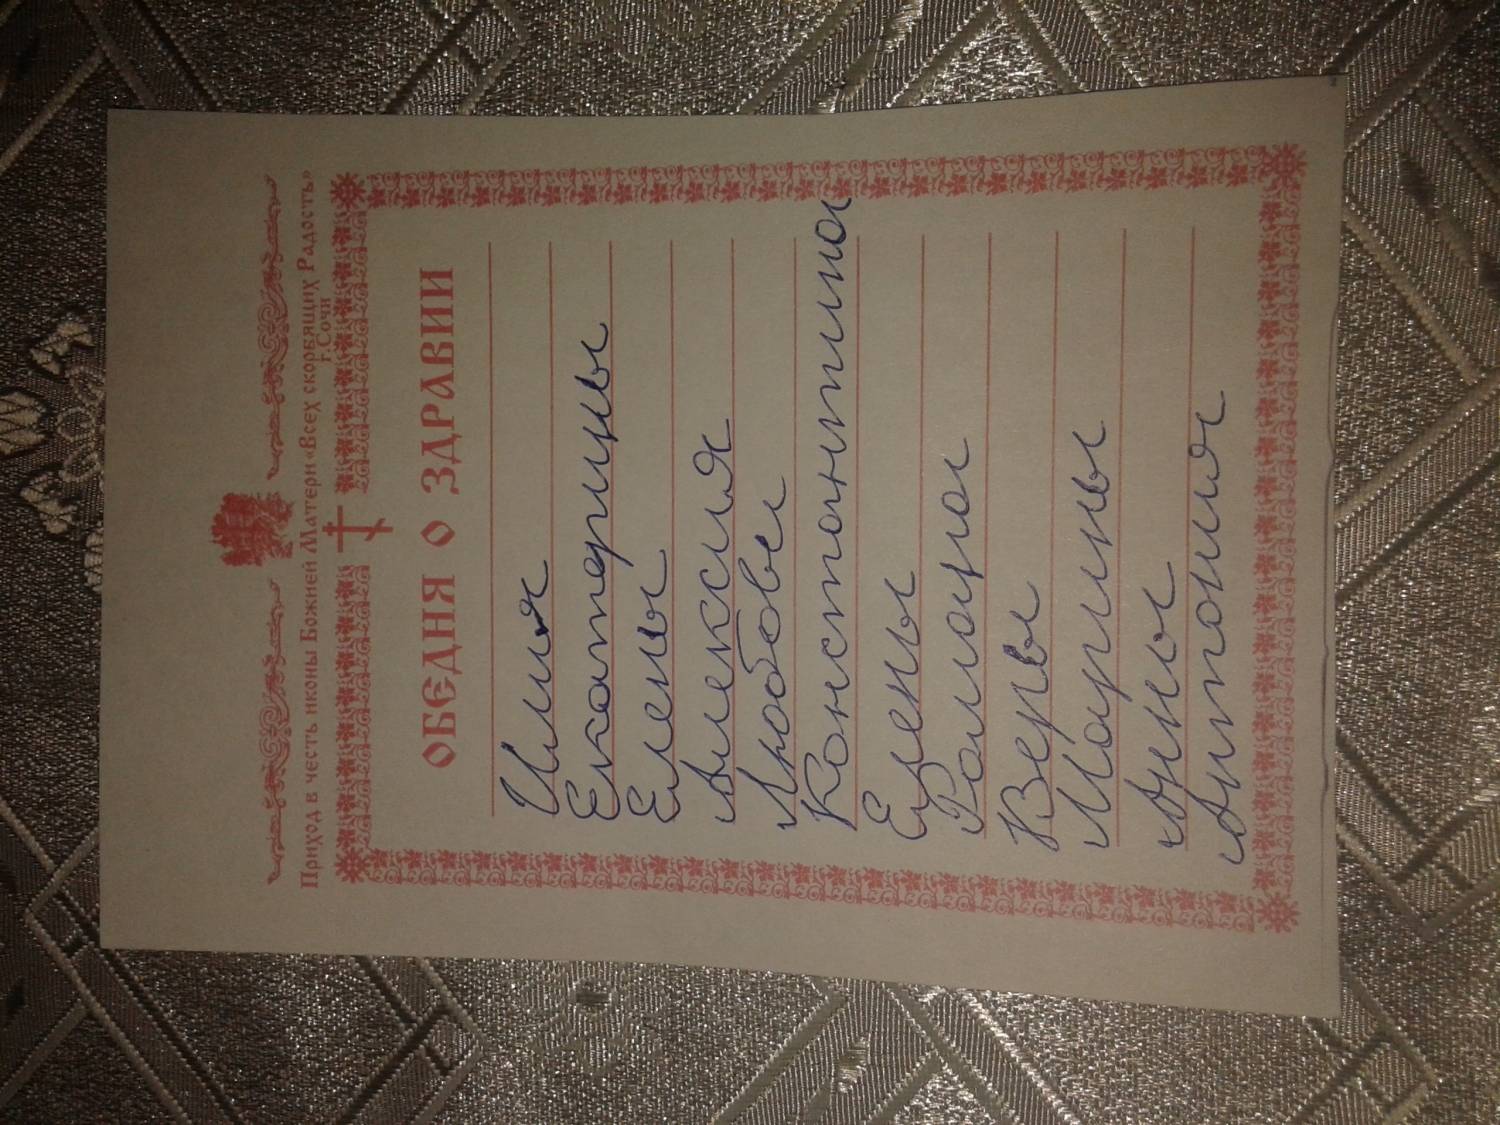 Приход в честь иконы Божией Матери «Всех скорбящих Радость»
г. Сочи
ОБЕДНЯ О ЗДРАВИИ
Илия
Екатерины
Елены
Алексия
Любови
Константина
Елены
Романа
Веры
Марины
Анны
Антония